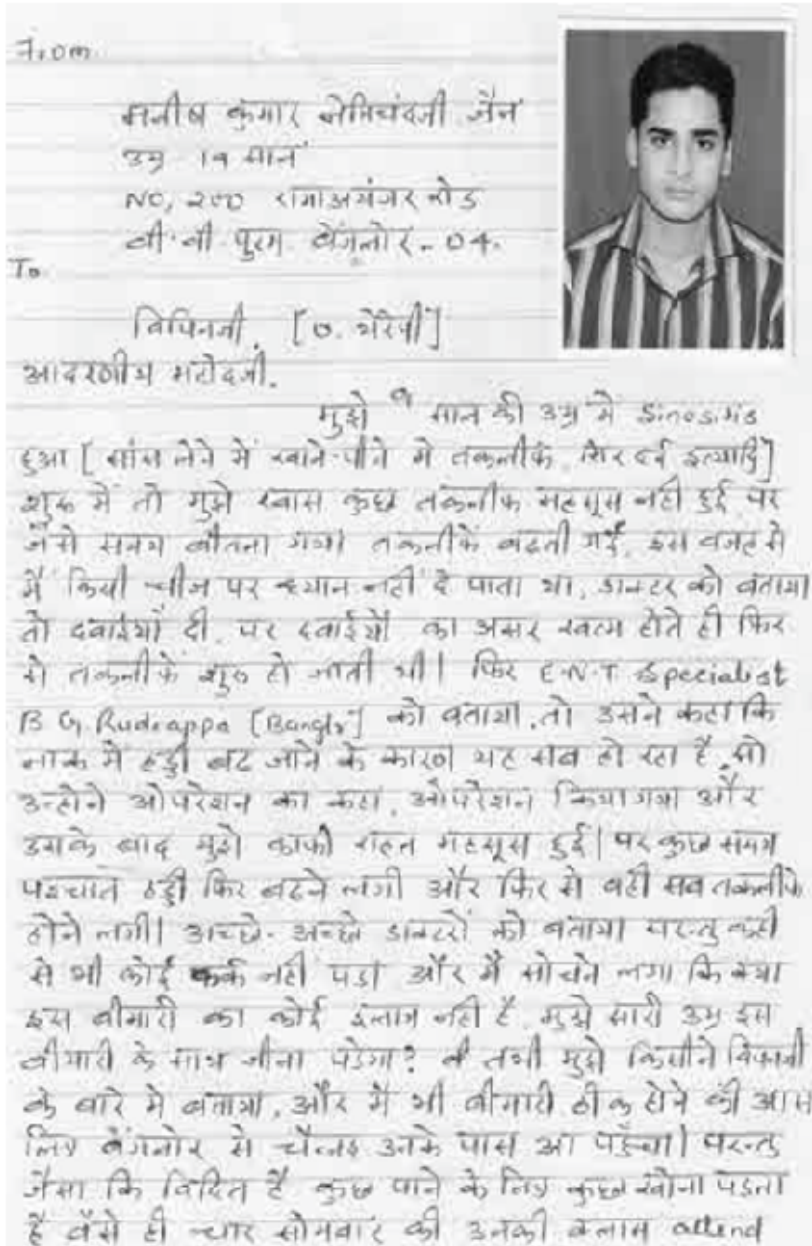 From
मनीष कुमार नेमिचंदजी जैन
उम्र 19 साल
NO, 200 रामाअयंगर रोड
वी. वी. पुरम बेंगलोर - 04.
To
विपिनजी, [ ]
आदरणीय महोदजी.
मुझे 9 साल की उम्र में Sinositis
हुआ [ सांस लेने में खाने-पीने में तकलीफ, सिर दर्द इत्यादि]
शुरू में तो मुझे खास कुछ तकलीफ महसूस नहीं हुई पर
जैसे समय बीतता गया तकलीफें बढती गई, इस वजह से
मैं किसी चीज पर ध्यान नहीं दे पाता था, डाक्टर को बताया
तो दवाईयाँ दी, पर दवाईयों का असर खत्म होते ही फिर
से तकलीफें शुरु हो जाती थी। फिर E.N.T Specialist
B G. Rudrappa [Banglr] को बताया, तो उसने कहा कि
नाक में हड्डी बढ जाने के कारण यह सब हो रहा है, सो
उन्होने ओपरेशन का कहा, ओपरेशन किया गया और
उसके बाद मुझे काफी राहत महसूस हुई। पर कुछ समय
पश्चात हड्डी फिर बढने लगी और फिर से वही सब तकलीफें
होने लगी। अच्छे-अच्छे डाक्टरों को बताया परन्तु कहीं
से भी कोई फर्क नहीं पडा और मैं सोचने लगा कि क्या
इस बीमारी का कोई इलाज नहीं है, मुझे सारी उम्र इस
बीमारी के साथ जीना पडेगा? तभी मुझे किसीने विपिनजी
के बारे मे बताया, और मैं भी बीमारी ठीक होने की आस
लिए बेंगलोर से चैन्नइ उनके पास आ पहुँचा। परन्तु
जैसा कि विदित है कुछ पाने के लिए कुछ खोना पडता
है वैसे ही चार सोमवार की उनकी क्लास attend